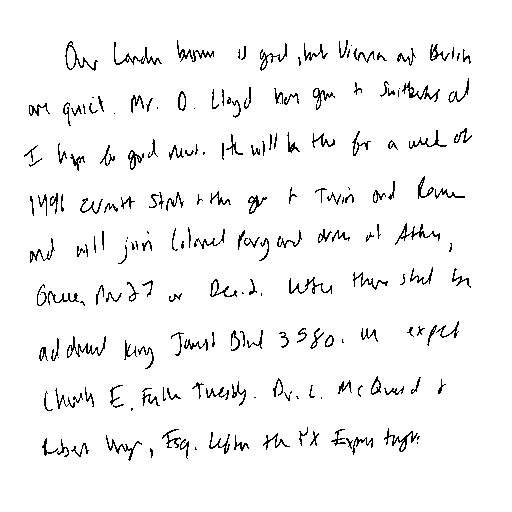 Our London business is good, but Vienna and Berlin
are quiet. Mr. D. Lloyd has gone to Switzerland and
I hope for good news. He will be there for a week at
1496 Zermott Street & then goes to Turin and Rome
and will join Colonel Parry and arrive at Athens,
Greece, Nov 27 or Dec. 2. Letters there should be
addressed King James Blvd 3580. We expect
Charles E. Fuller Tuesday. Dr. L. McQuaid &
Robert Unger, Esq. left on the XX Express tonight.